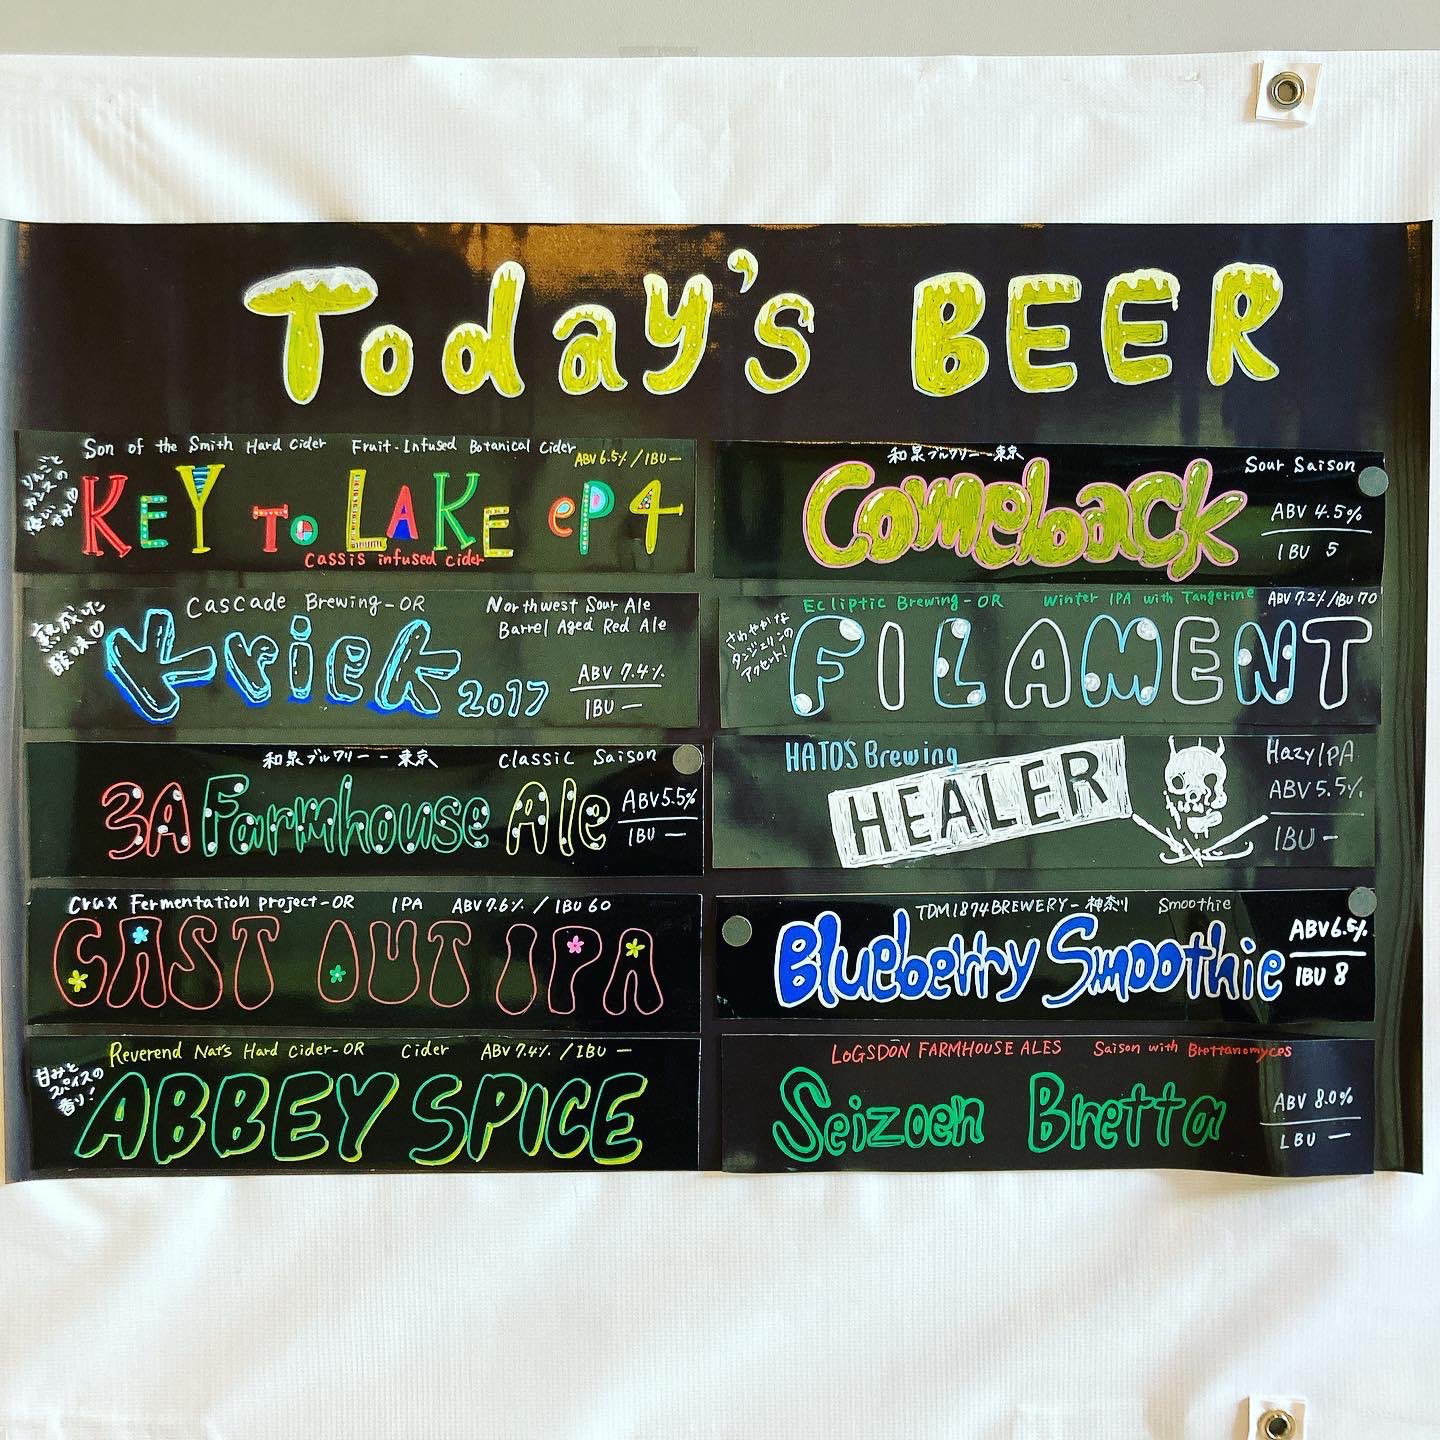 Today's BEER
Son of the Smith Hard Cider Fruit-Infused Botanical Cider
ABV 6.5% / IBU —
りんごと
カシスの
優しい甘み♡
KEY TO LAKE eP4
Cassis infused cider
Cascade Brewing-OR
Northwest Sour Ale
Barrel Aged Red Ale
熟成した
酸味♡
Kriek 2017
ABV 7.4%
IBU —
和泉ブルワリー - 東京 Classic Saison
3A Farmhouse Ale
ABV 5.5%
IBU —
Crux Fermentation project-OR IPA ABV 7.6% / IBU 60
CAST OUT IPA
Reverend Nat's Hard Cider-OR Cider ABV 7.4% / IBU —
甘みと
スパイスの
香り!
ABBEY SPICE
和泉ブルワリー 東京
Sour Saison
Comeback
ABV 4.5%
IBU 5
Ecliptic Brewing-OR Winter IPA with Tangerine ABV 7.2% / IBU 70
さわやかな
タンジェリンの
アクセント!
FILAMENT
HATOS Brewing
HEALER
Hazy IPA
ABV 5.5%
IBU -
TDM1874BREWERY-神奈川 Smoothie
Blueberry Smoothie
ABV 6.5%
IBU 8
LOGSDON FARMHOUSE ALES Saison with Brettanomyces
Seizoen Bretta
ABV 8.0%
LBU —